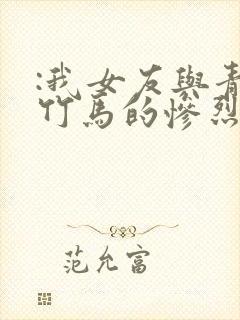 :我女友與青
竹馬的慘烈
范允富